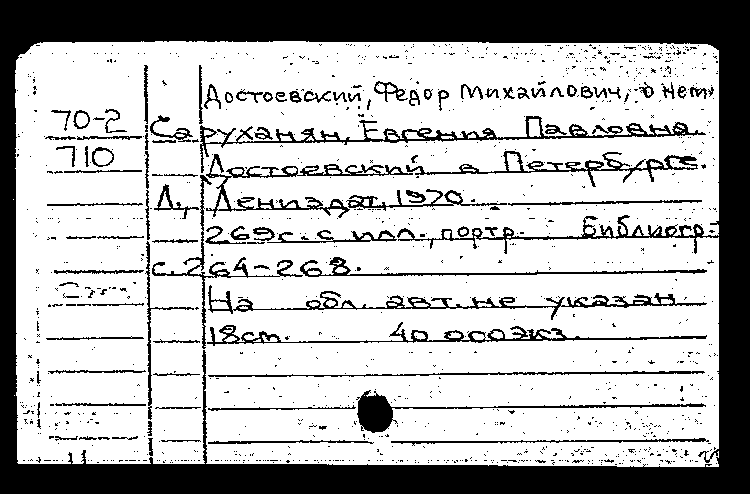 Достоевский, Федор Михайлович, о нем
70-2 Саруханян, Евгения Павловна.
710 Достоевский в Петербурге.
Л., Лениздат, 1970.
269с. с илл., портр. Библиогр.:
с. 264-268.
На обл. авт. не указан
18см. 40 000экз.